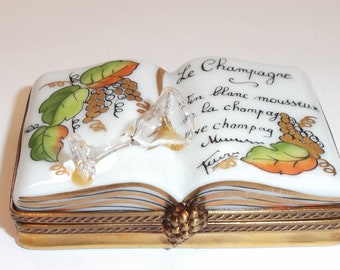 Le Champagne
Vin blanc mousseux
la champag
champag